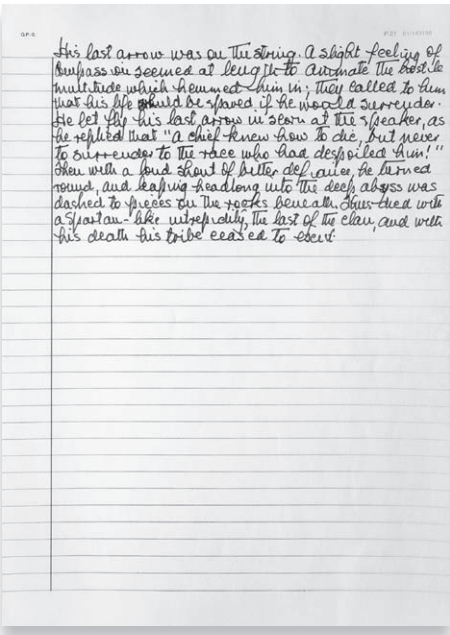 G.P.-S.
His last arrow was on the string. A slight feeling of
compassion seemed at length to animate the hostile
multitude which hemmed him in; they called to him
that his life should be spared if he would surrender.
He let fly his last arrow in scorn at the speaker, as
he replied that "a chief knew how to die, but never
to surrender to the race who had despoiled him!"
Then with a loud shout of bitter defiance, he turned
round, and leaping headlong into the deep abyss was
dashed to pieces on the rocks beneath. Thus died with
a Spartan-like intrepidity, the last of the clan, and with
his death his tribe ceased to exist.